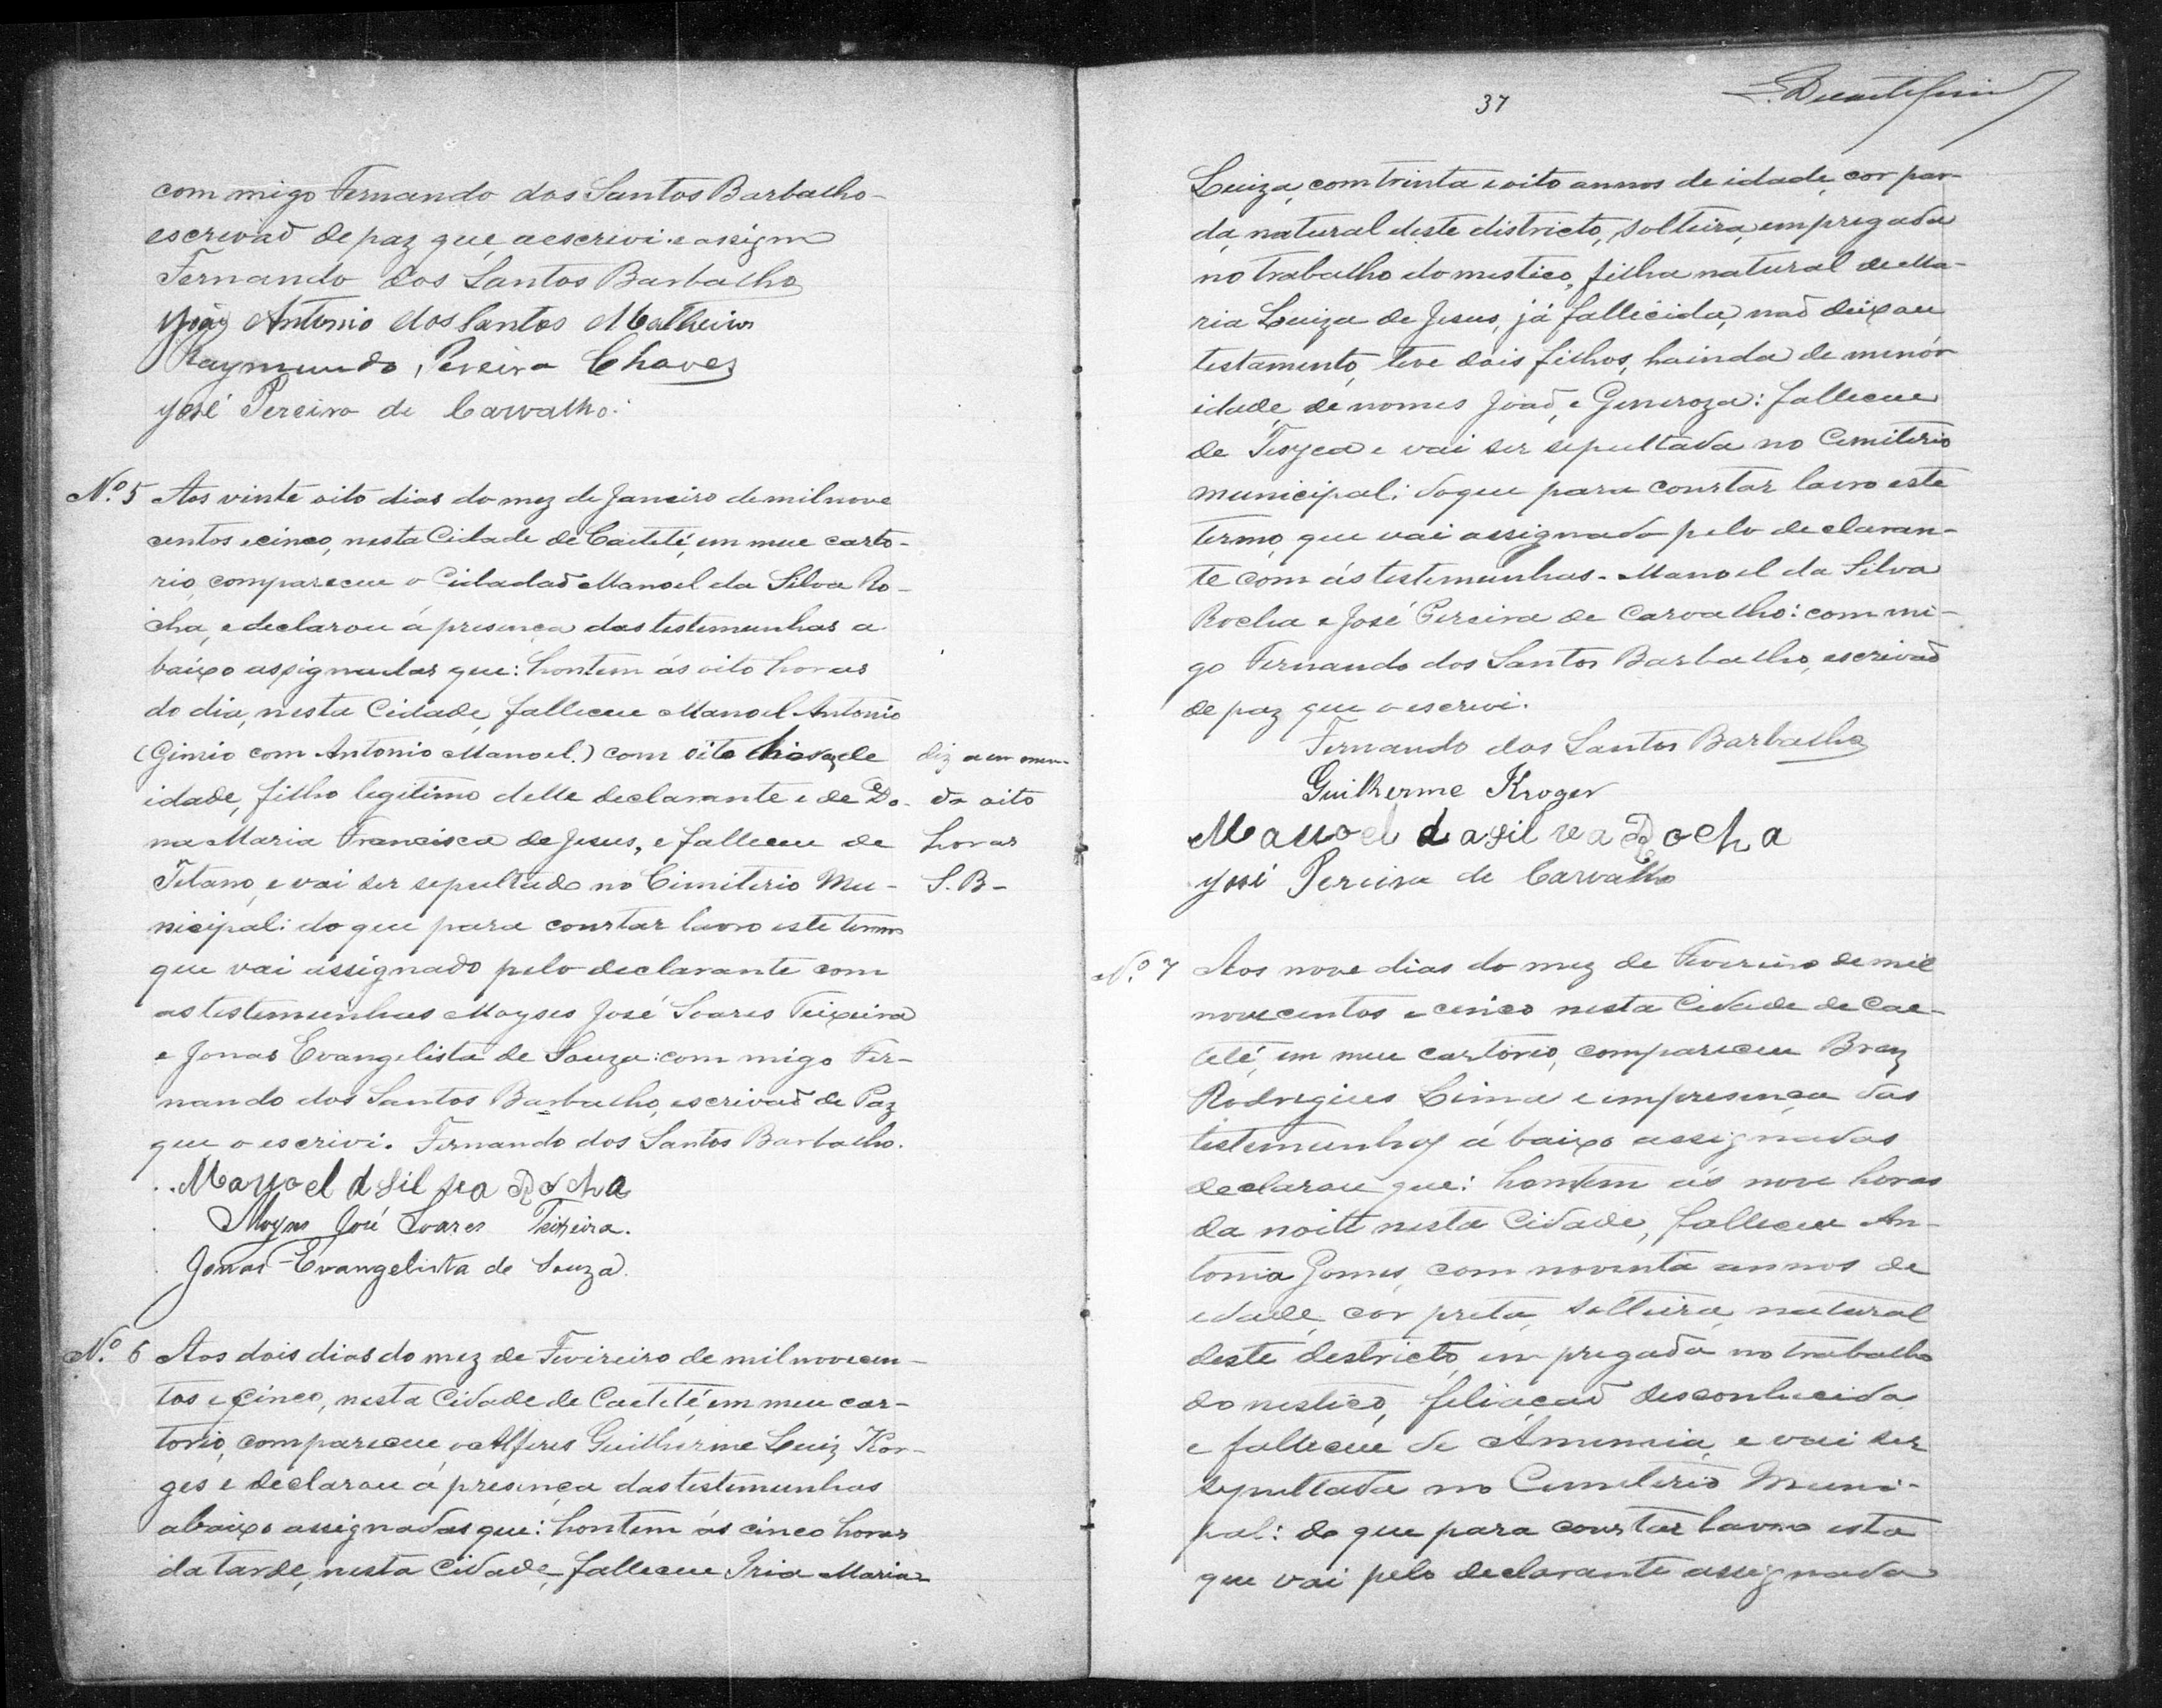 com migo Fernando dos Santos Barbalho-
escrivaõ de paz que a escrivi e assigno
Fernando dos Santos Barbalho
João Antonio dos Santos Malheiros
Raymundo Pereira Chaves
José Pereira de Carvalho.
Nº. 5 Aos vinte oito dias do mez de Janeiro de mil nove
centos e cinco, nesta Cidade de Caeteté, em meu carto-
rio, compareceu o Cidadaõ Manoel da Silva Ro-
cha, e declarou á presença das testemunhas a
baixo assignadas que: hontem ás oito horas
do dia, nesta Cidade, falleceu Manoel Antonio
(Gimio com Antonio Manoel.) com oito de
idade, filho legitimo delle declarante e de Do-
na Maria Francisca de Jesus, e falleceu de
Tetano, e vai ser sepultado no Cimiterio Mu-
nicipal: do que para constar lavro este termo
que vai assignado pelo declarante com
as testemunhas Moyses José Soares Teixeira
e Jonas Evangelista de Souza: com migo Fer-
nando dos Santos Barbalho, escrivaõ de Paz
que o escrivi. Fernando dos Santos Barbalho.
diz a em men-
da oito
horas
S. B-
Manoel d Silva Rocha
Moyses José Soares Teixeira.
Jonas Evangelista de Souza.
Nº. 6 Aos dois dias do mez de Fevireiro de mil novecen-
tos e cinco, nesta Cidade de Caeteté, em meu car-
torio, compareceu o Alferes Guilherme Luiz Kor-
ges e declarou á presença das testemunhas
abaixo assignadas que: hontem ás cinco horas
da tarde, nesta Cidade, falleceu Iria Maria
37
Luiza, com trinta e oito annos de idade, cor par-
da, natural deste districto, solteira, empregada
no trabalho domestico, filha natural de Ma-
ria Luiza de Jesus, já fallecida, naõ deixou
testamento, teve dois filhos, hainda de menór
idade, de nomes Joaõ, e Generoza: falleceu
de Tisyca e vai ser sepultada no Cemiterio
municipal: do que para constar lavro este
termo, que vai assignado pelo declaran-
te com ás testemunhas. Manoel da Silva
Rocha e José Pereira de Carvalho: com mi-
go Fernando dos Santos Barbalho, escrivaõ
de paz que o escrivi.
Fernando dos Santos Barbalho
Guilherme Kroger
Manoel da silva Rocha
José Pereira de Carvalho
Nº. 7 Aos nove dias do mez de Fevereiro de mil
novecentos e cinco nesta Cidade de Cae-
teté, em meu cartorio, compareceu Braz
Rodrigues Lima e em presença das
testemunhas á baixo assignadas
declarou que: hontem ás nove horas
da noite nesta Cidade, falleceu An-
tonia Gomes, com noventa annos de
idade, cor preta, solteira, natural
deste destricto, empregada no trabalho
domestico, feliaçaõ desconhecida
e falleceu de Amemia, e vai ser
sepultada no Cemeterio Muni-
pal: do que para constar lavro esta
que vai pelo declarante assignada